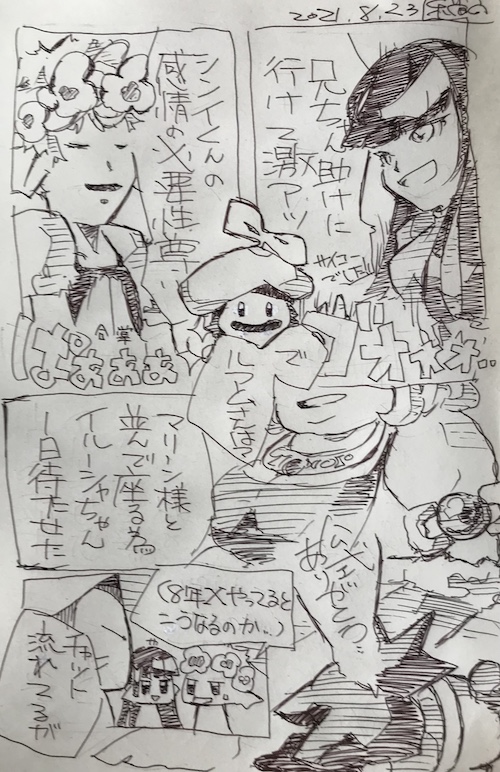 2021.8.23
兄ちゃん助けに
行けて激アツ
サイコー
でした!!
シンイくんの
感情の必要性尊い
合掌
ぱぁぁぁ
オオオ
で
ルアムさんは?
マリーン様と
並んで座る為
イルーシャちゃん
1日待たせた
(8年メやってると
こうなるのか…)
チャット
流れてるが